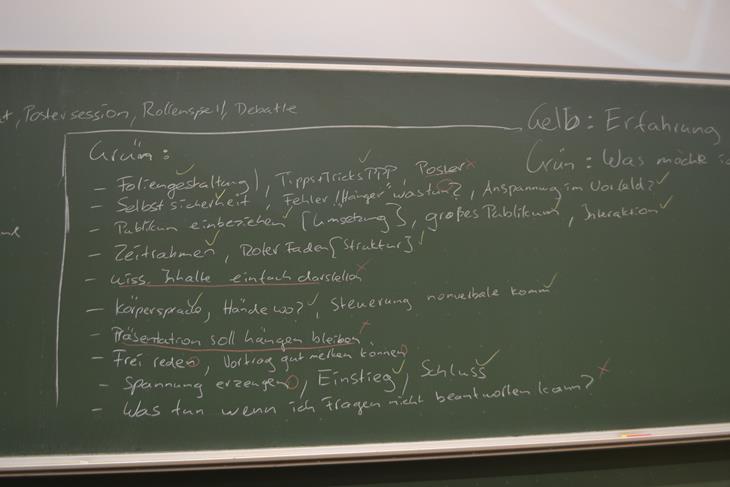 , Postersession, Rollenspiel, Debatte
Gelb: Erfahrung
Grün: Was möchte ic
Grün:
- Foliengestaltung, Tipps+Tricks PPP, Poster
- Selbstsicherheit, Fehler/"Hänger" was tun?, Anspannung im Vorfeld?
- Publikum einbeziehen [Umsetzung], großes Publikum, Interaktion
- Zeitrahmen, Roter Faden [Struktur]
- wiss. Inhalte einfach darstellen
- Körpersprache, Hände wo?, Steuerung nonverbale Komm
- Präsentation soll hängen bleiben
- Frei reden, Vortrag gut merken können
- Spannung erzeugen, Einstieg, Schluss
- Was tun wenn ich Fragen nicht beantworten kann?